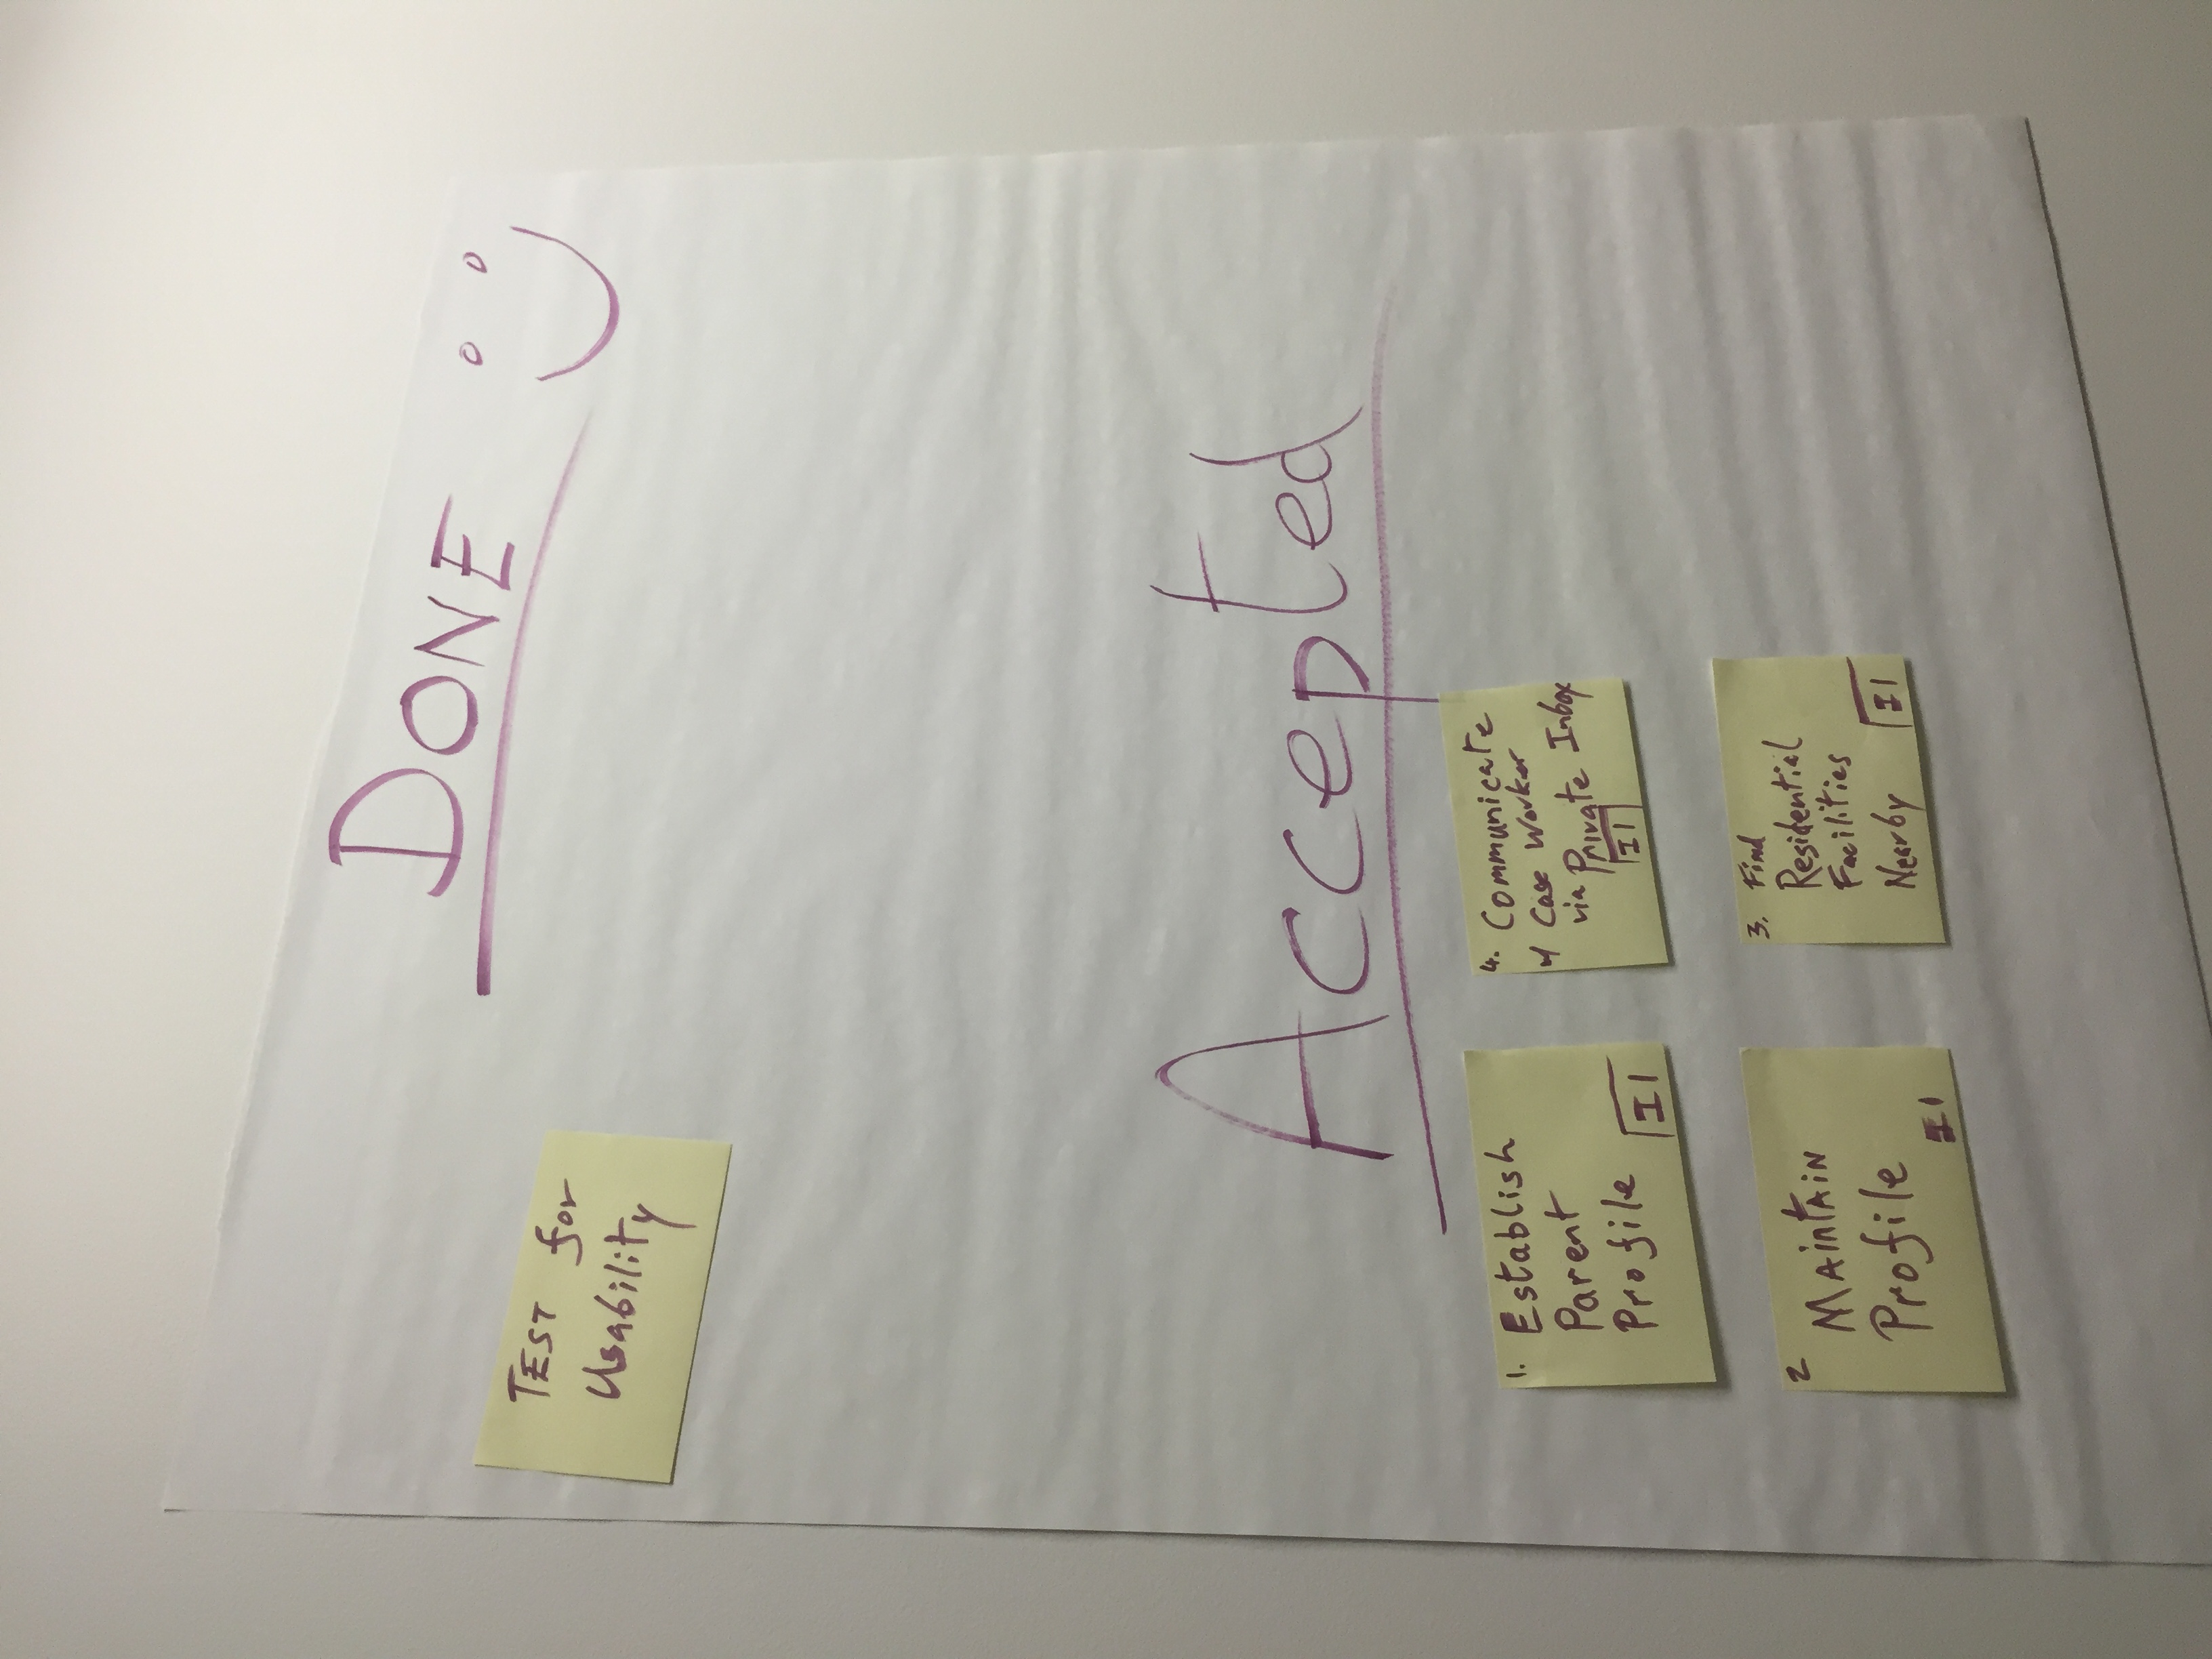 DONE
TEST for
Usability
Accepted
1. Establish
Parent
Profile
I1
4. Communicate
w/ Case Worker
via Private Inbox
I1
2
MAintAiN
Profile
I1
3. Find
Residential
Facilities
Nearby
I1